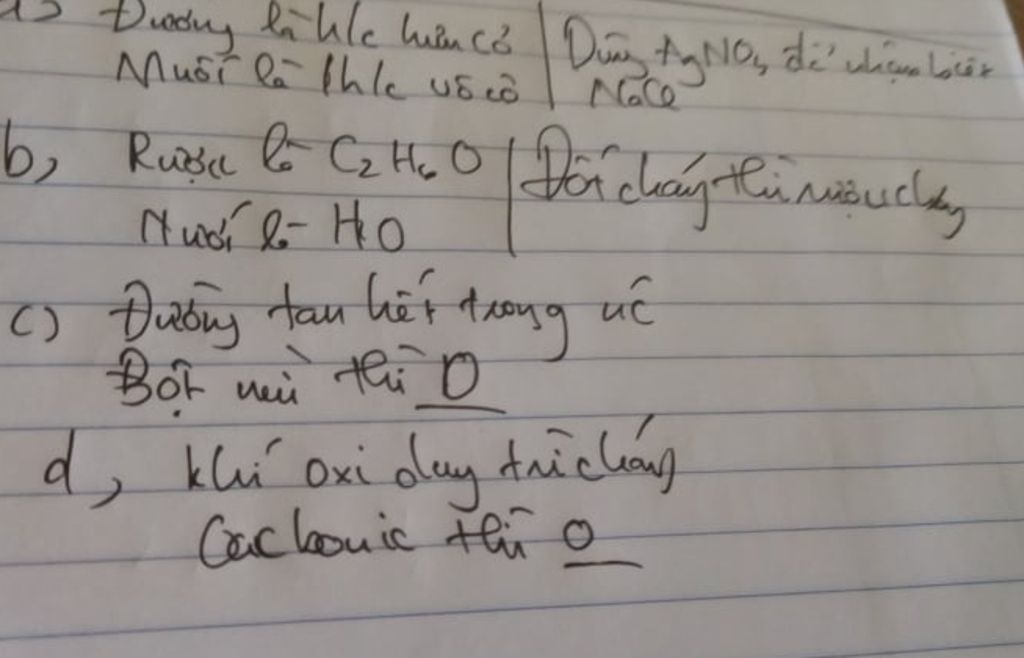 a) Đường là h/c hữu cơ | Dùng AgNO3 để nhận biết
Muối là h/c vô cơ | NaCl
b, Rượu là C2H6O | Đốt cháy thì rượu cháy
Nước là H2O
c) Đường tan hết trong nc
Bột mì thì O
d, khí oxi duy trì cháy
Cacbonic thì O